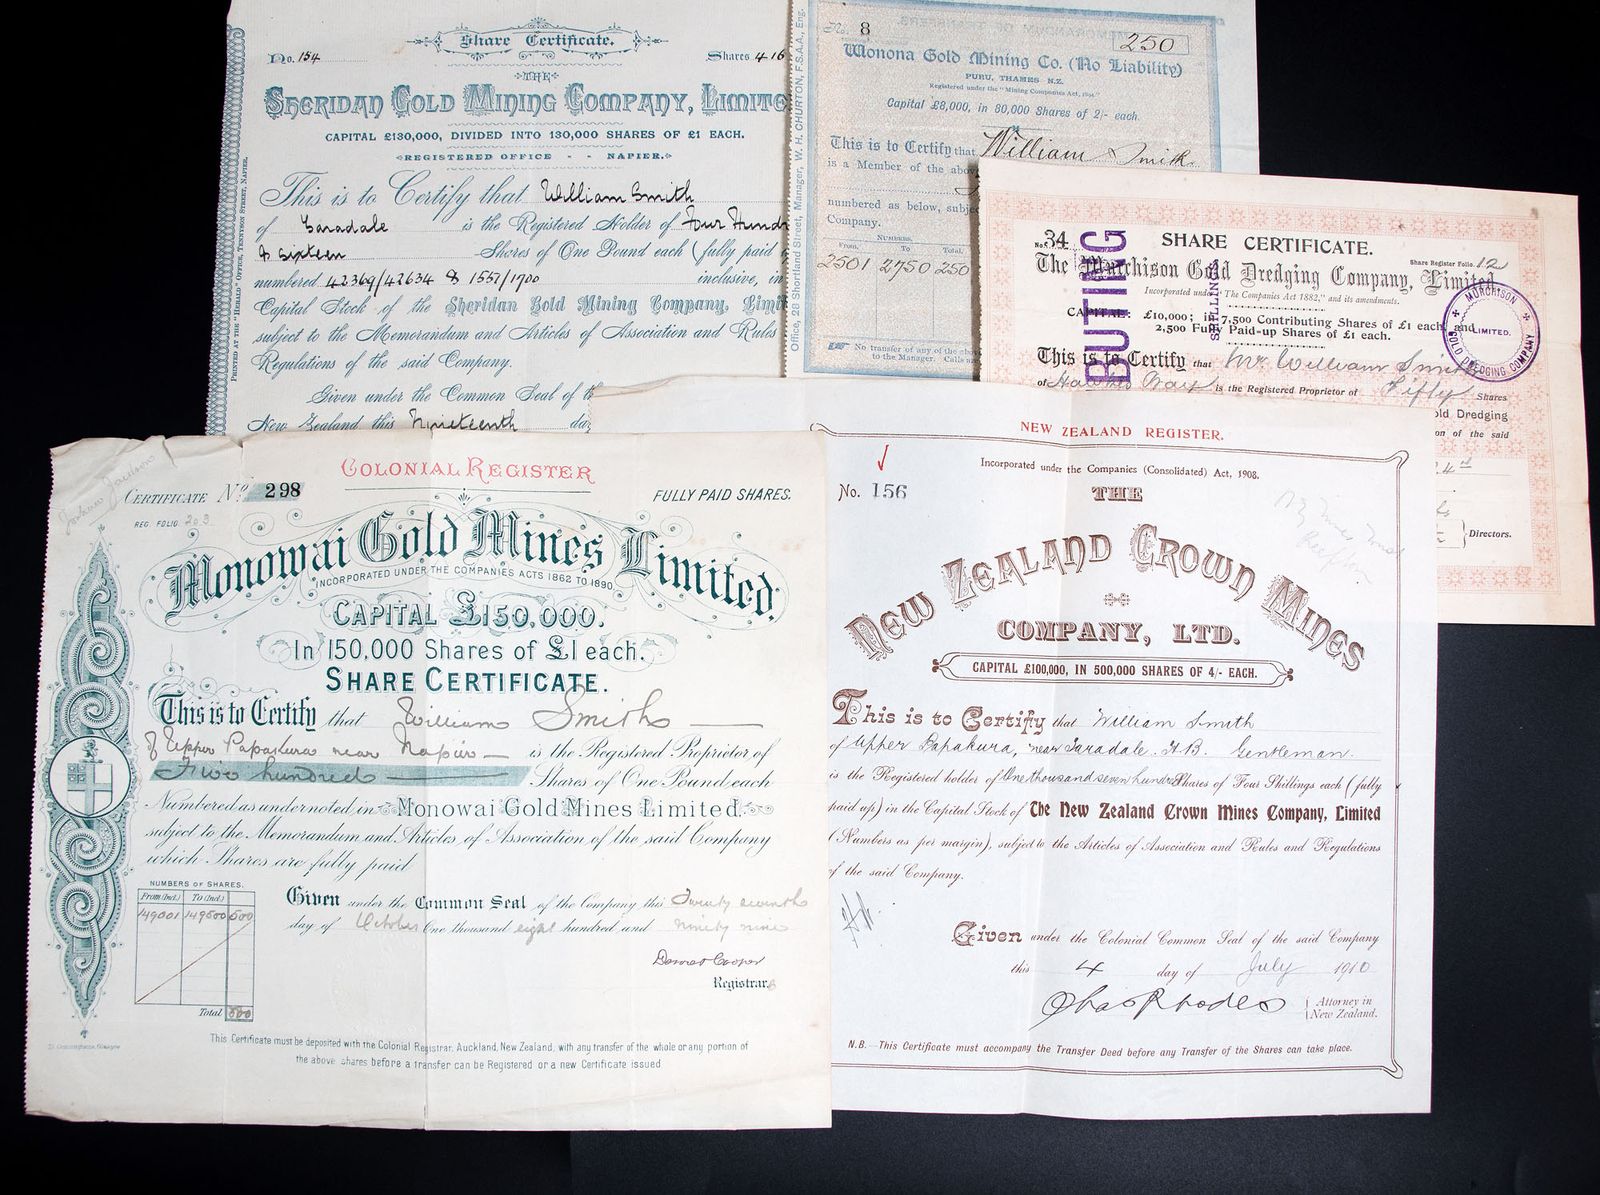 Share Certificate.
No. 154
Shares 416
THE
SHERIDAN GOLD MINING COMPANY, LIMITE
CAPITAL £130,000, DIVIDED INTO 130,000 SHARES OF £1 EACH.
REGISTERED OFFICE - - NAPIER.
This is to Certify that William Smith
of Taradale is the Registered Holder of Four Hundr
& Sixteen Shares of One Pound each (fully paid
numbered 42369/42634 & 1551/1700 inclusive, in
Capital Stock of the Sheridan Gold Mining Company, Limit
subject to the Memorandum and Articles of Association and Rules
Regulations of the said Company.
Given under the Common Seal of th
New Zealand this Nineteenth day
PRINTED AT THE "HERALD" OFFICE, TENNYSON STREET, NAPIER.
Office, 28 Shortland Street, Manager, W. H. CHURTON, F.S.A.A., Eng.
No. 8
250
Monona Gold Mining Co. (No Liability)
PURU, THAMES N.Z.
Registered under the "Mining Companies Act, 1894."
Capital £8,000, in 80,000 Shares of 2/- each.
This is to Certify that William Smith
is a Member of the abov
numbered as below, subjec
Company.
NUMBERS.
From. To Total.
2501 2750 250
No transfer of any of the abov
to the Manager. Calls are
No. 34
SHARE CERTIFICATE.
Share Register Folio 12
The Murchison Gold Dredging Company, Limited
Incorporated under "The Companies Act 1882," and its amendments.
CAPITAL: £10,000; in 7,500 Contributing Shares of £1 each, and
2,500 Fully Paid-up Shares of £1 each.
This is to Certify that Mr William Smith
of Hawkes Bay is the Registered Proprietor of Fifty Shares
old Dredging
on of the said
Directors.
BUTING
SHILLINGS
MURCHISON GOLD DREDGING COMPANY
LIMITED.
COLONIAL REGISTER
CERTIFICATE No. 298
FULLY PAID SHARES.
REG. FOLIO 203
Monowai Gold Mines Limited.
INCORPORATED UNDER THE COMPANIES ACTS 1862 TO 1890
CAPITAL £150,000.
In 150,000 Shares of £1 each.
SHARE CERTIFICATE.
This is to Certify that William Smith
of Upper Papakura near Napier is the Registered Proprietor of
Five hundred Shares of One Pound each
Numbered as undernoted in Monowai Gold Mines Limited.
subject to the Memorandum and Articles of Association of the said Company
which Shares are fully paid
NUMBERS OF SHARES.
From (Incl.) To (Incl.)
149001 149500 500
Total 500
Given under the Common Seal of the Company this Twenty seventh
day of October One thousand eight hundred and ninety nine
Registrar.
This Certificate must be deposited with the Colonial Registrar, Auckland, New Zealand, with any transfer of the whole or any portion of
the above shares before a transfer can be Registered or a new Certificate issued
NEW ZEALAND REGISTER.
Incorporated under the Companies (Consolidated) Act, 1908.
No. 156
THE
NEW ZEALAND CROWN MINES
COMPANY, LTD.
CAPITAL £100,000, IN 500,000 SHARES OF 4/- EACH.
This is to Certify that William Smith
of Upper Papakura, near Taradale. H.B. Gentleman.
is the Registered holder of One thousand seven hundred Shares of Four Shillings each (fully
paid up) in the Capital Stock of The New Zealand Crown Mines Company, Limited
(Numbers as per margin), subject to the Articles of Association and Rules and Regulations
of the said Company.
Given under the Colonial Common Seal of the said Company
this 4 day of July 1910
Chas Rhodes
Attorney in
New Zealand.
N.B.—This Certificate must accompany the Transfer Deed before any Transfer of the Shares can take place.